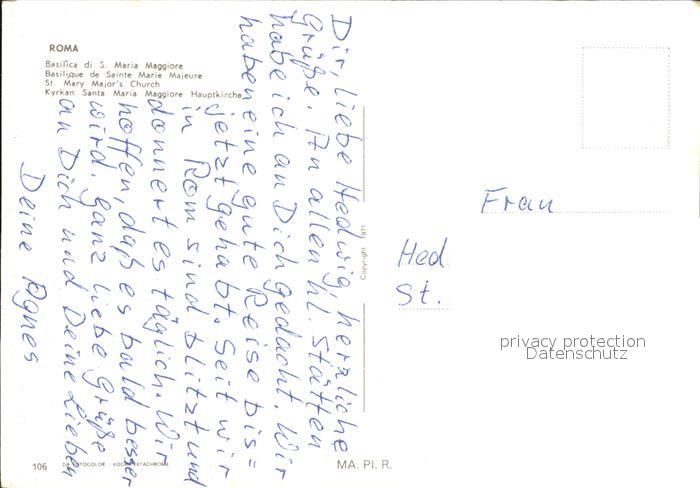 ROMA
Basilica di S. Maria Maggiore
Basilique de Sainte Marie Majeure
St. Mary Major's Church
Kyrkan Santa Maria Maggiore Hauptkirche
Dir, liebe Hedwig, herzliche
Grüße. An allen hl. Stätten
habe ich an Dich gedacht. Wir
haben eine gute Reise bis=
jetzt gehabt. Seit wir
in Rom sind blitzt und
donnert es täglich. Wir
hoffen, daß es bald besser
wird. Ganz liebe Grüße
an Dich und Deine Lieben
Deine Agnes
Copyright 1971
Frau
Hed
St.
privacy protection
Datenschutz
106
KODAK EKTACHROME
MA. PI. R.